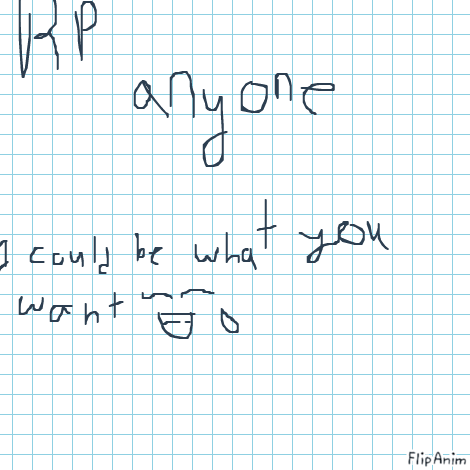 RP
anyone
I could be what you
want
FlipAnim